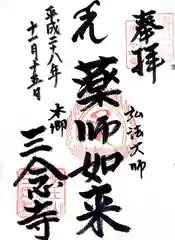 奉拝
弘法大師
薬師如来
本師
三念寺
平成二十八年
十一月十五日